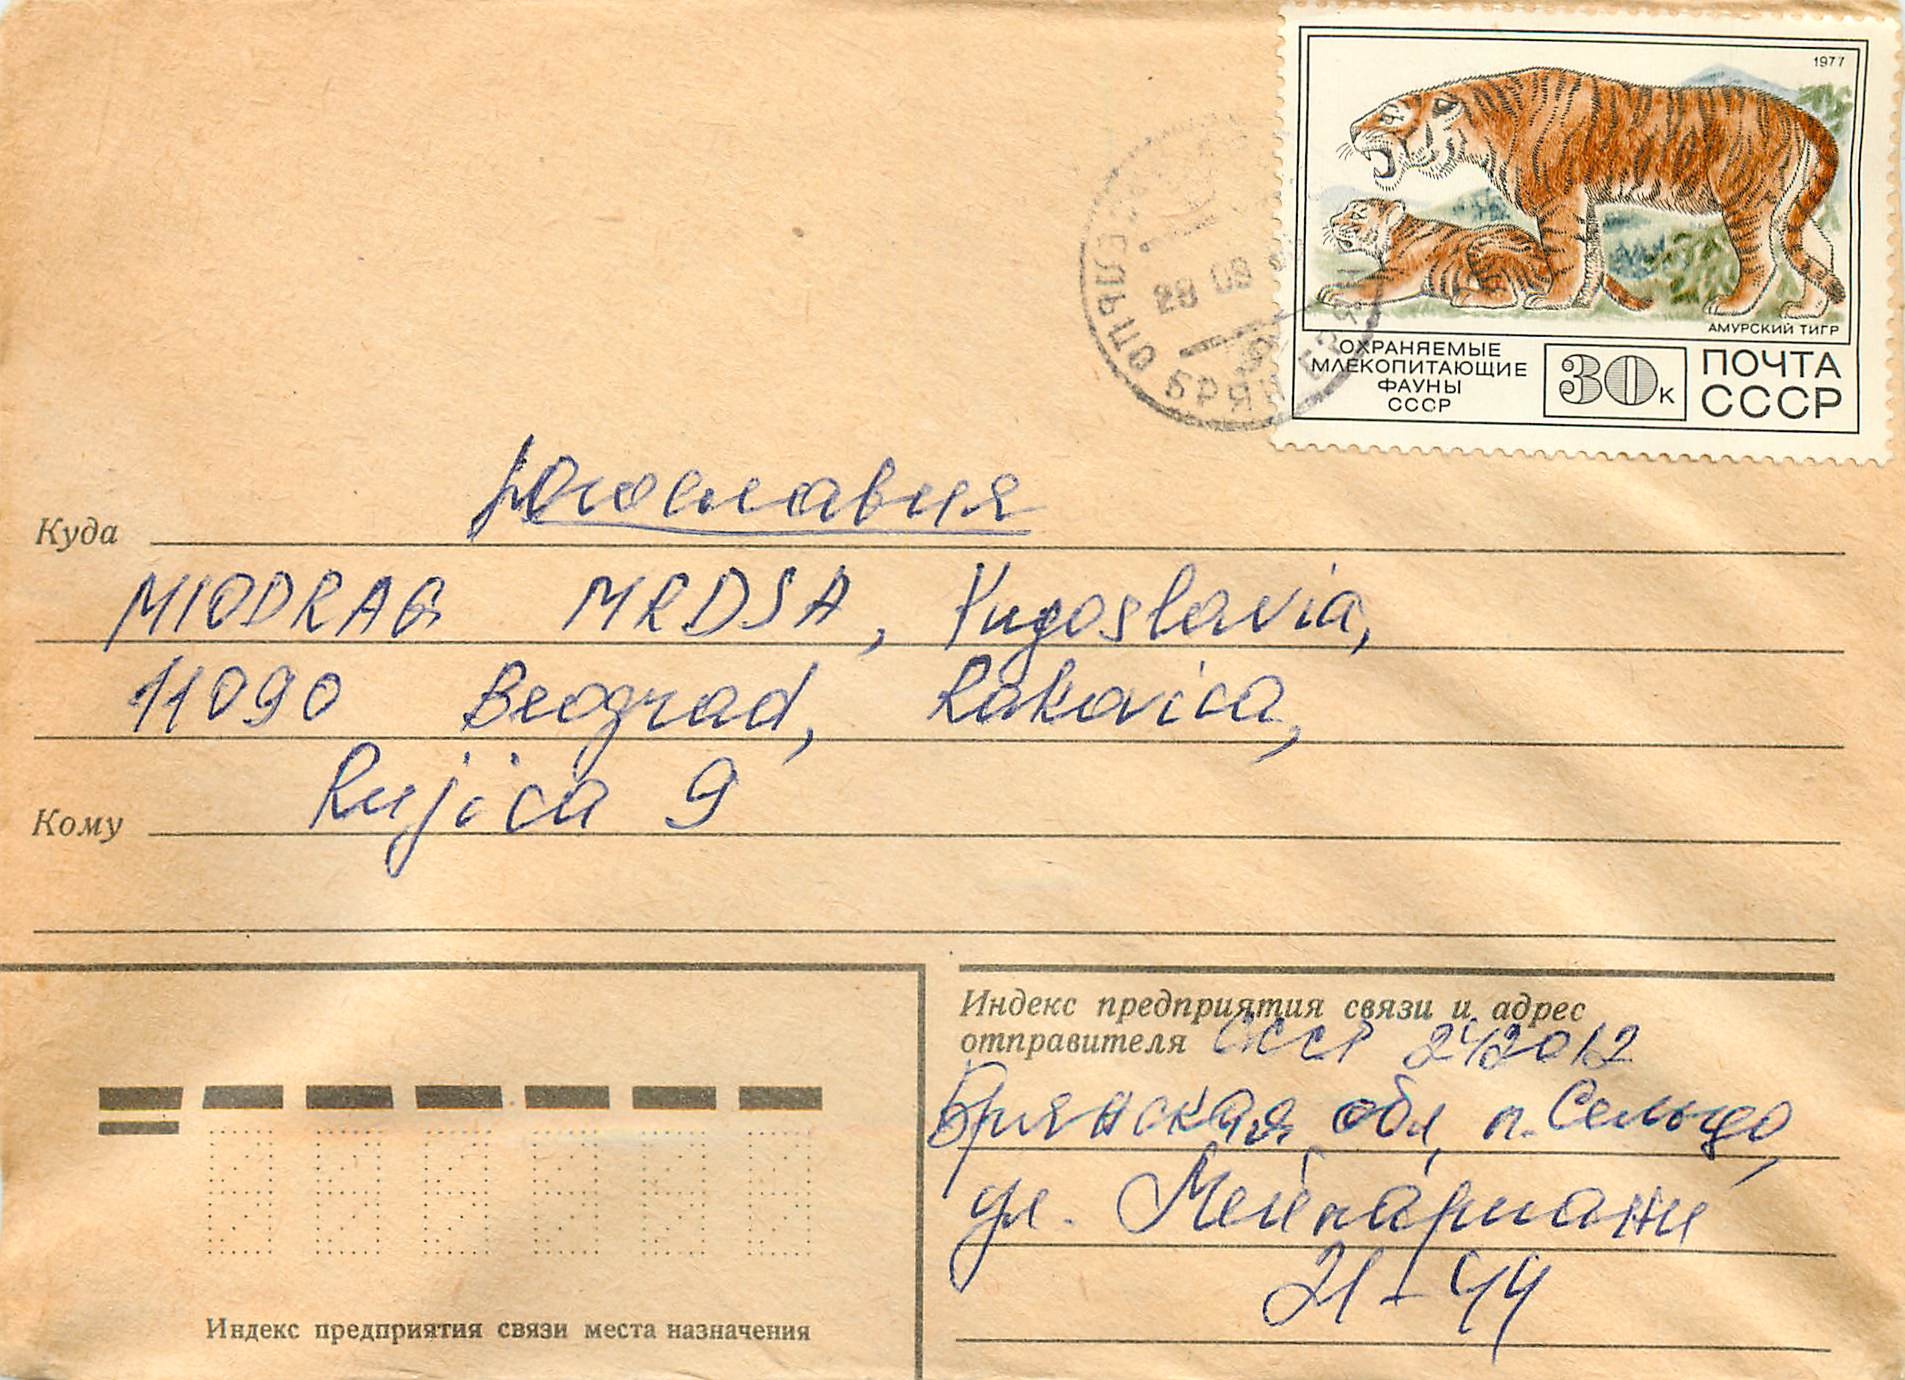 1977
АМУРСКИЙ ТИГР
ОХРАНЯЕМЫЕ
МЛЕКОПИТАЮЩИЕ
ФАУНЫ
СССР
30 К
ПОЧТА
СССР
28 08
Куда Югославия
MIODRAG MRDSA, Yugoslavia,
11090 Beograd, Rakovica,
Rujica 9
Кому
Индекс предприятия связи и адрес
отправителя СССР 242012
Брянская обл, п. Сельцо,
ул. Мейпариани
21-44
Индекс предприятия связи места назначения